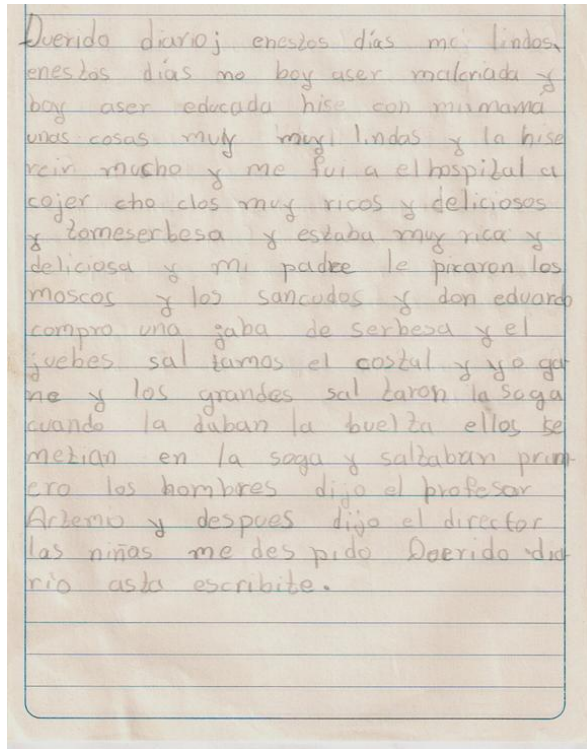 Querido diario; enestos días mi lindos
enestos días no boy aser malcriada y
boy aser educada hise con mimama
unas cosas muy muy lindas y la hise
reir mucho y me fui a elhospital a
cojer cho clos muy ricos y deliciosos
y tomeserbesa y estaba muy rica y
deliciosa y mi padre le picaron los
moscos y los sancudos y don eduardo
compro una jaba de serbesa y el
juebes sal tamos el costal y yo ga
ne y los grandes sal taron la soga
cuando la daban la buelta ellos se
metian en la soga y saltaban prim
ero los hombres dijo el profesor
Artemio y despues dijo el director
las niñas me des pido Querido dia
rio asta escribite.